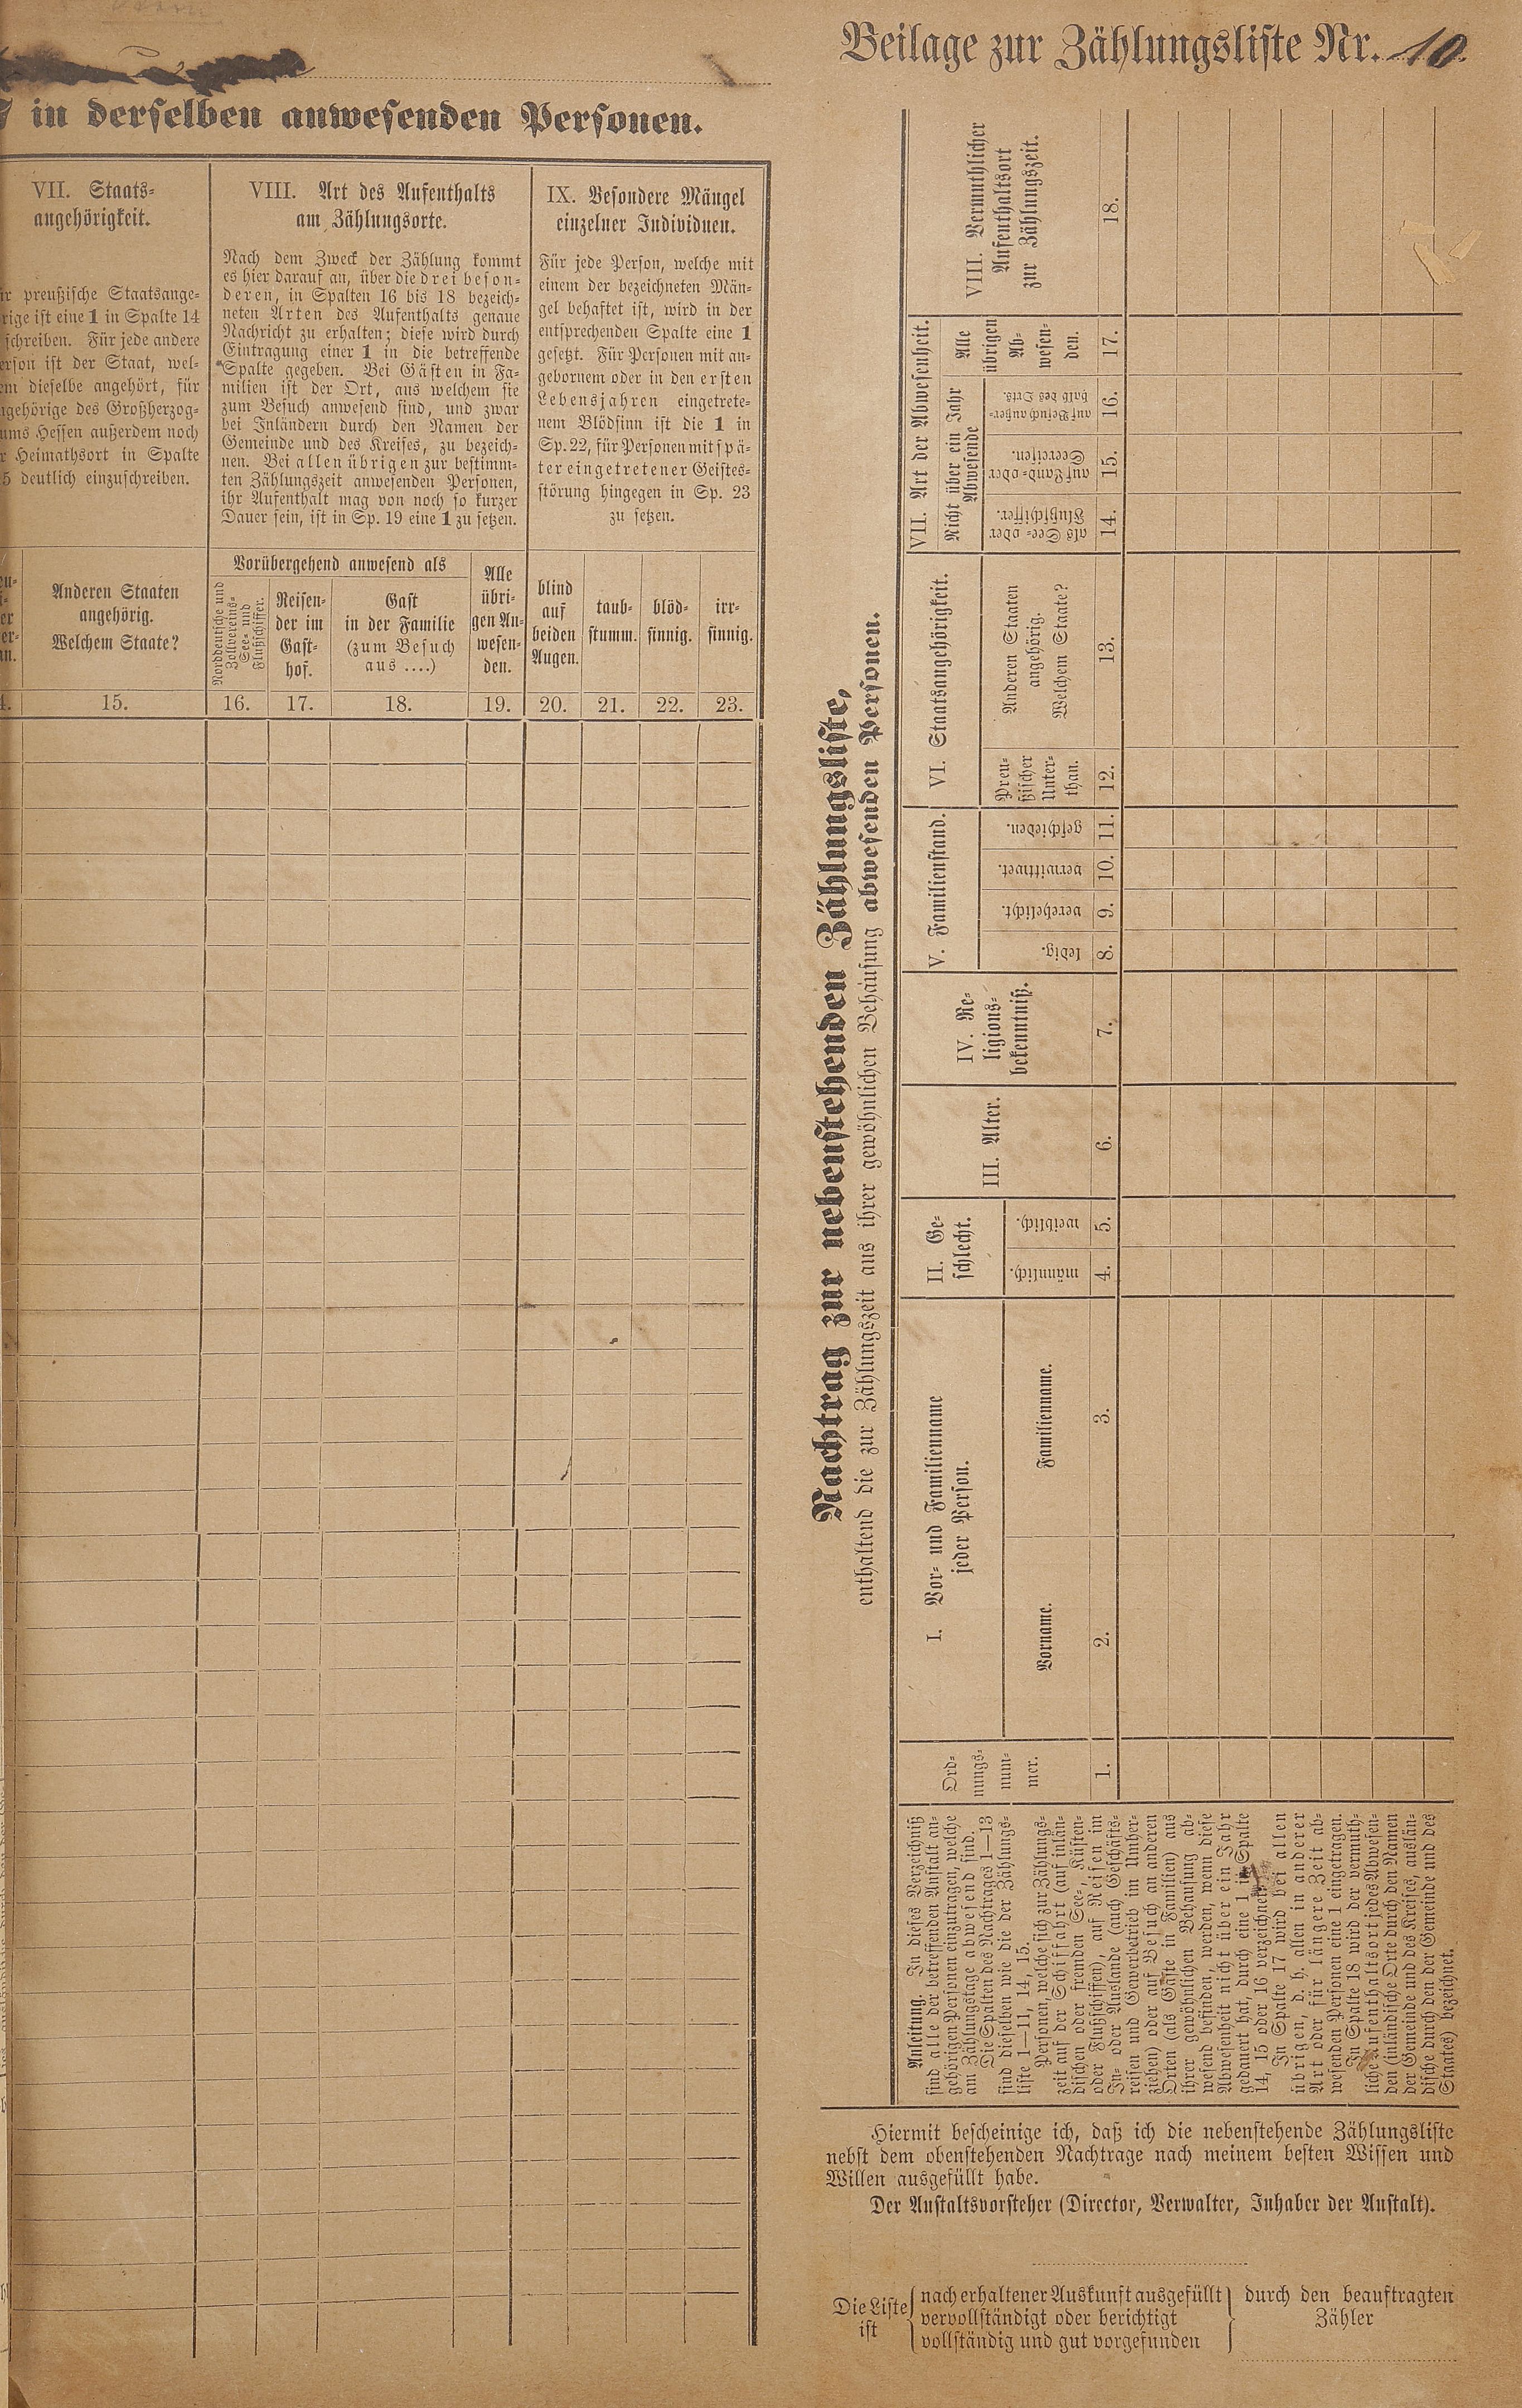 Beilage zur Zählungsliste Nr. 10.
in derselben anwesenden Personen.
VII. Staats-
angehörigkeit.
preußische Staatsange-
ist eine 1 in Spalte 14
schreiben. Für jede andere
ist der Staat, wel-
dieselbe angehört, für
des Großherzog-
Hessen außerdem noch
Heimathsort in Spalte
deutlich einzuschreiben.
Anderen Staaten
angehörig.
Welchem Staate?
15.
VIII. Art des Aufenthalts
am Zählungsorte.
Nach dem Zweck der Zählung kommt
es hier darauf an, über die drei beson-
deren, in Spalten 16 bis 18 bezeich-
neten Arten des Aufenthalts genaue
Nachricht zu erhalten; diese wird durch
Eintragung einer 1 in die betreffende
Spalte gegeben. Bei Gästen in Fa-
milien ist der Ort, aus welchem sie
zum Besuch anwesend sind, und zwar
bei Inländern durch den Namen der
Gemeinde und des Kreises, zu bezeich-
nen. Bei allen übrigen zur bestimm-
ten Zählungszeit anwesenden Personen,
ihr Aufenthalt mag von noch so kurzer
Dauer sein, ist in Sp. 19 eine 1 zu setzen.
Vorübergehend anwesend als
Norddeutsche und
Zollvereins-
See- und
Flußschiffer.
Reisen-
der im
Gast-
hof.
Gast
in der Familie
(zum Besuch
aus ....)
Alle
übri-
gen An-
wesen-
den.
16. 17. 18. 19.
IX. Besondere Mängel
einzelner Individuen.
Für jede Person, welche mit
einem der bezeichneten Män-
gel behaftet ist, wird in der
entsprechenden Spalte eine 1
gesetzt. Für Personen mit an-
gebornem oder in den ersten
Lebensjahren eingetrete-
nem Blödsinn ist die 1 in
Sp. 22, für Personen mit spä-
ter eingetretener Geistes-
störung hingegen in Sp. 23
zu setzen.
blind
auf
beiden
Augen.
taub-
stumm.
blöd-
sinnig.
irr-
sinnig.
20. 21. 22. 23.
Nachtrag zur nebenstehenden Zählungsliste,
enthaltend die zur Zählungszeit aus ihrer gewöhnlichen Behausung abwesenden Personen.
Anleitung. In dieses Verzeichniß
sind alle der betreffenden Anstalt an-
gehörigen Personen einzutragen, welche
am Zählungstage abwesend sind.
Die Spalten des Nachtrages 1—13
sind dieselben wie die der Zählungs-
liste 1—11, 14, 15.
Personen, welche sich zur Zählungs-
zeit auf der Schiffahrt (auf inlän-
dischen oder fremden See-, Küsten-
oder Flußschiffen), auf Reisen im
In- oder Auslande (auch Geschäfts-
reisen und Gewerbetrieb im Umher-
ziehen) oder auf Besuch an anderen
Orten (als Gäste in Familien) aus
ihrer gewöhnlichen Behausung ab-
wesend befinden, werden, wenn diese
Abwesenheit nicht über ein Jahr
gedauert hat, durch eine 1 in Spalte
14, 15 oder 16 verzeichnet.
In Spalte 17 wird bei allen
übrigen, d. h. allen in anderer
Art oder für längere Zeit ab-
wesenden Personen eine 1 eingetragen.
In Spalte 18 wird der vermuth-
liche Aufenthaltsort jedes Abwesen-
den (inländische Orte durch den Namen
der Gemeinde und des Kreises, auslän-
dische durch den der Gemeinde und des
Staates) bezeichnet.
Ord-
nungs-
num-
mer.
1.
I. Vor- und Familienname
jeder Person.
Vorname.
2.
Familienname.
3.
II. Ge-
schlecht.
männlich.
4.
weiblich.
5.
III. Alter.
6.
IV. Re-
ligions-
bekenntniß.
7.
V. Familienstand.
ledig.
8.
verehelicht.
9.
verwittwet.
10.
geschieden.
11.
VI. Staatsangehörigkeit.
Preu-
ßischer
Unter-
than.
12.
Anderen Staaten
angehörig.
Welchem Staate?
13.
VII. Art der Abwesenheit.
Nicht über ein Jahr
Abwesende
als See- oder
Flußschiffer.
14.
auf Land- oder
Seereisen.
15.
auf Besuch außer-
halb des Orts.
16.
Alle
übrigen
Ab-
wesen-
den.
17.
VIII. Vermuthlicher
Aufenthaltsort
zur Zählungszeit.
18.
Hiermit bescheinige ich, daß ich die nebenstehende Zählungsliste
nebst dem obenstehenden Nachtrage nach meinem besten Wissen und
Willen ausgefüllt habe.
Der Anstaltsvorsteher (Director, Verwalter, Inhaber der Anstalt).
Die Liste
ist
nach erhaltener Auskunft ausgefüllt
vervollständigt oder berichtigt
vollständig und gut vorgefunden
durch den beauftragten
Zähler